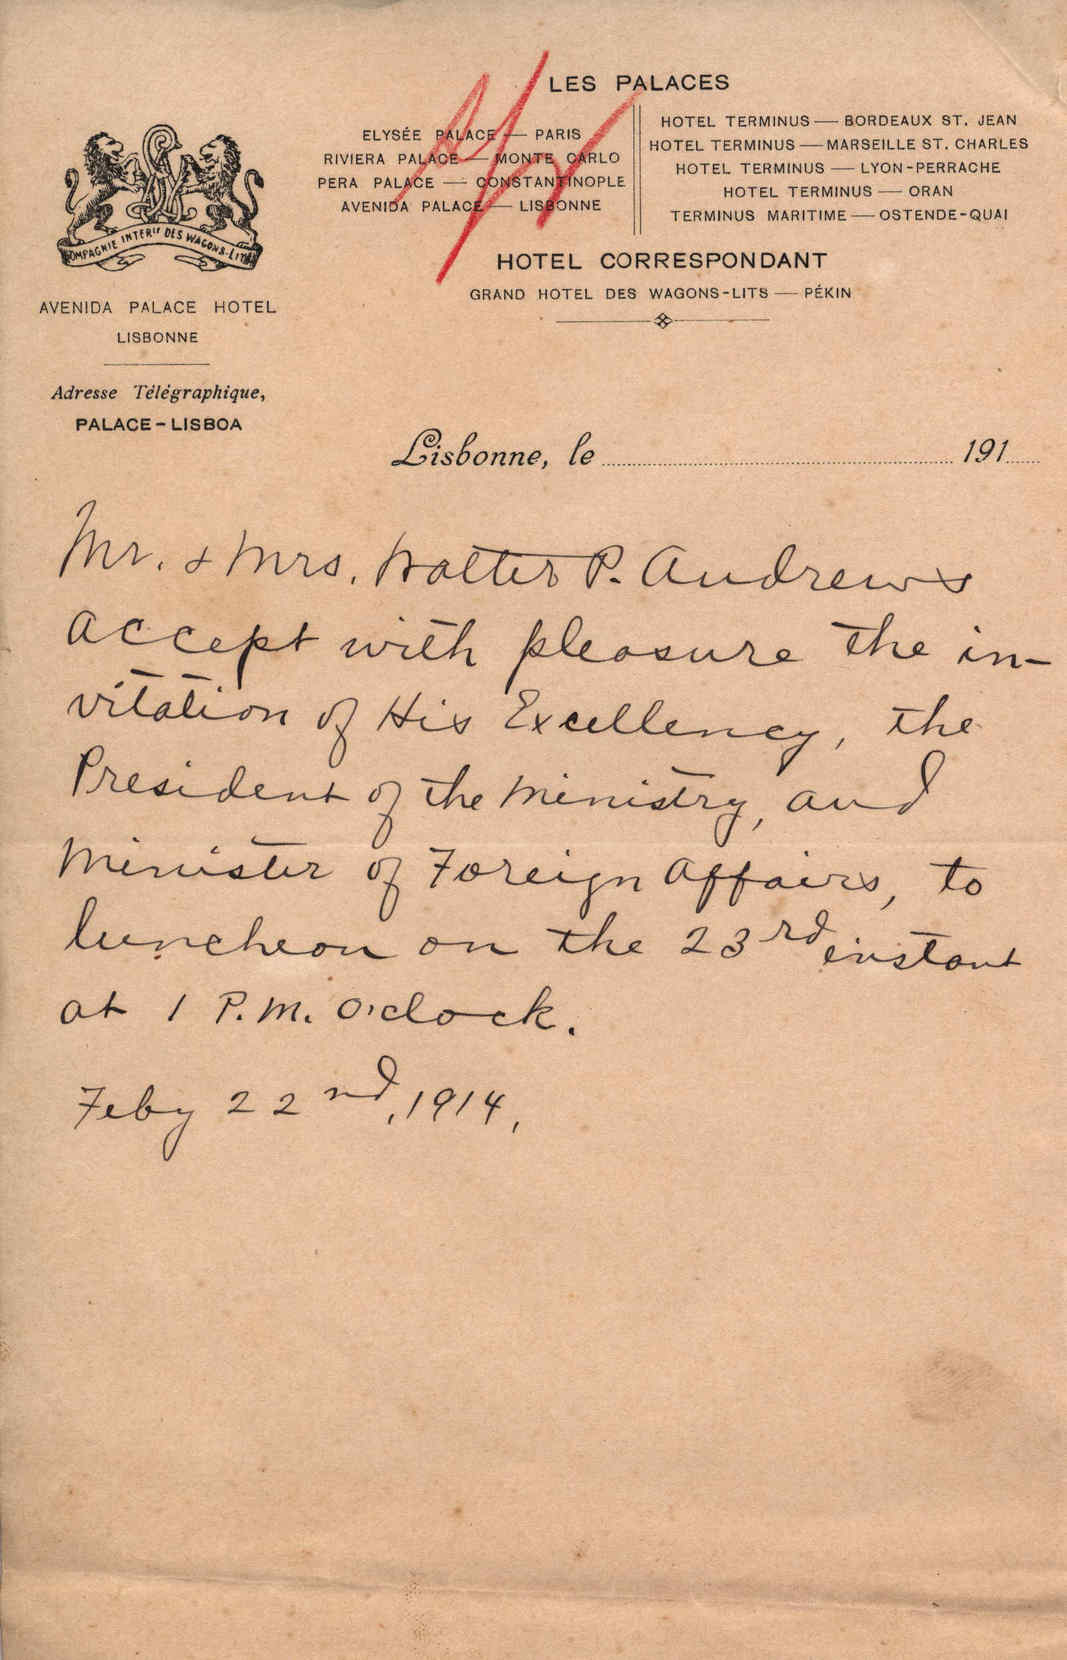 LES PALACES
ELYSÉE PALACE — PARIS
RIVIERA PALACE — MONTE CARLO
PERA PALACE — CONSTANTINOPLE
AVENIDA PALACE — LISBONNE
HOTEL TERMINUS — BORDEAUX ST. JEAN
HOTEL TERMINUS — MARSEILLE ST. CHARLES
HOTEL TERMINUS — LYON-PERRACHE
HOTEL TERMINUS — ORAN
TERMINUS MARITIME — OSTENDE-QUAI
HOTEL CORRESPONDANT
GRAND HOTEL DES WAGONS-LITS — PÉKIN
COMPAGNIE INTERLE DES WAGONS-LITS
AVENIDA PALACE HOTEL
LISBONNE
Adresse Télégraphique,
PALACE-LISBOA
Lisbonne, le 191
Mr. & Mrs. Walter P. Andrews
accept with pleasure the in-
vitation of His Excellency, the
President of the Ministry, and
Minister of Foreign Affairs, to
luncheon on the 23rd instant
at 1 P.M. O'clock.
Feby 22nd, 1914,